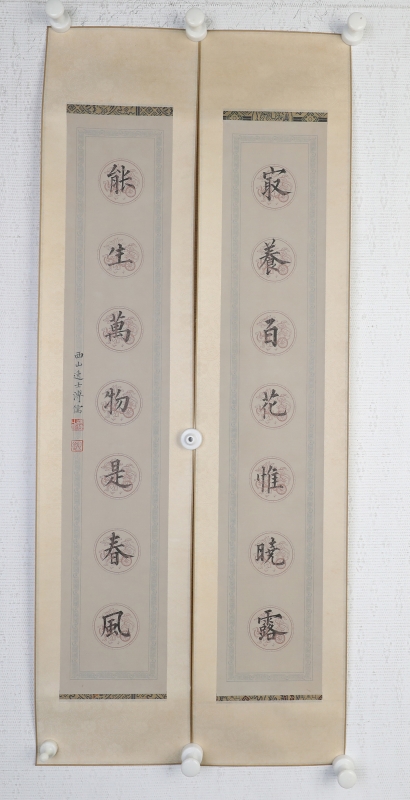 㝡養百花惟曉露
能生萬物是春風
西山逸士溥儒